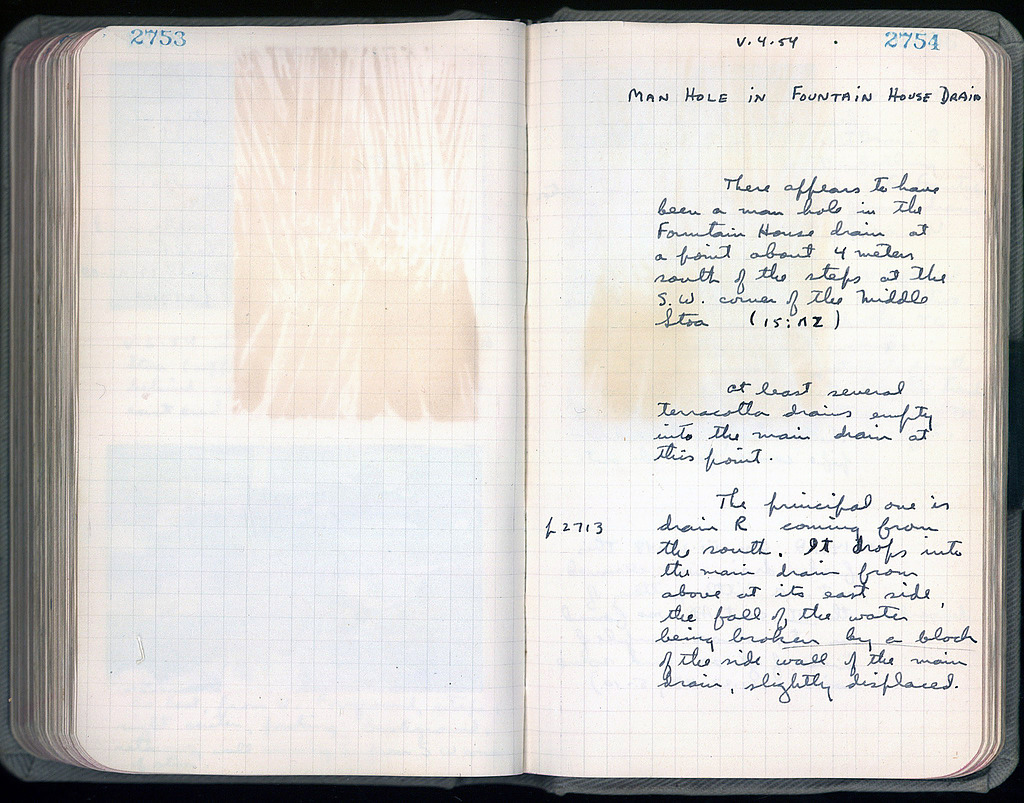 2753
V.4.54
2754
MAN HOLE IN FOUNTAIN HOUSE DRAIN
There appears to have
been a man hole in the
Fountain House drain at
a point about 4 meters
south of the steps at the
S.W. corner of the Middle
Stoa (15:ΛΖ)
At least several
terracotta drains empty
into the main drain at
this point.
The principal one is
p 2713
drain R coming from
the south. It drops into
the main drain from
above at its east side,
the fall of the water
being broken by a block
of the side wall of the main
drain, slightly displaced.